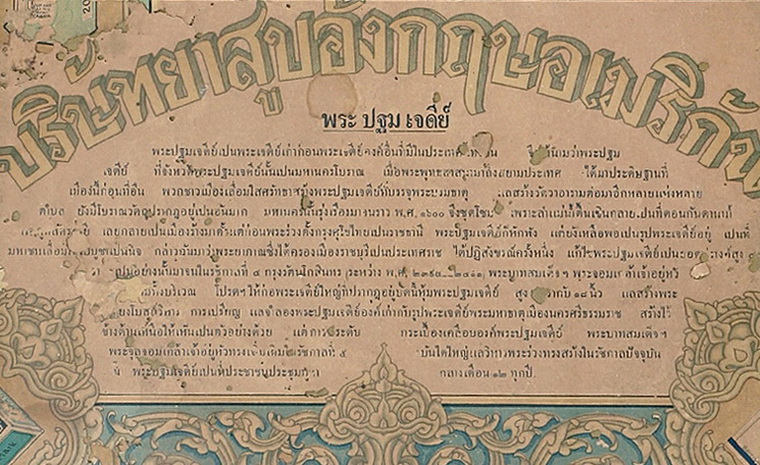 บริษัทยาสูบอังกฤษอเมริกัน
พระ ปฐม เจดีย์
พระปฐมเจดีย์เปนพระเจดีย์เก่าก่อนพระเจดีย์องค์อื่นที่มีในประเทศ นามว่าพระปฐม
เจดีย์ ที่จังหวัดพระปฐมเจดีย์นั้นเปนมหานครโบราณ เมื่อพระพุทธสาสนามาถึงสยามประเทศ ได้มาประดิษฐานที่
เมืองนี้ก่อนที่อื่น พวกชาวเมืองเลื่อมใสศรัทธาสร้างพระปฐมเจดีย์ที่บรรจุพระบรมธาตุ แลสร้างวัดวาอารามต่อมาอีกหลายแห่งหลาย
ตำบล ยังมีโบราณวัตถุปรากฏอยู่เปนอันมาก มหานครนั้นรุ่งเรืองมาจนราว พ.ศ. ๑๖๐๐ จึงซุดโซม เพราะลำแม่น้ำตื้นเขินกลายเปนที่ดอนกันดารน้ำ
เลยกลายเปนเมืองร้างมาแต่ก่อนพระร่วงตั้งกรุงศุโขไทยเปนราชธานี พระเจดีย์ก็หักพัง แต่ยังเหลือพอเปนรูปพระเจดีย์อยู่ เปนที่
มหาชนเลื่อมใสบูชาเปนนิจ กล่าวกันมาว่าพระยาพานซึ่งได้ครองเมืองราชบุรีเปนประเทศราช ได้ปฏิสังขรณ์ครั้งหนึ่ง แก้ไขพระปฐมเจดีย์เปนยอดปรางค์สูง
เปนอย่างนั้นมาจนในรัชกาลที่ ๔ กรุงรัตนโกสินทร (ระหว่าง พ.ศ. ๒๓๙๔_๒๔๑๑) พระบาทสมเด็จฯ พระจอมเกล้าเจ้าอยู่หัว
บริเวณ โปรดฯ ให้ก่อพระเจดีย์ใหญ่ที่ปรากฏอยู่บัดนี้หุ้มพระปฐมเจดีย์ สูง ๑๘ นิ้ว แลสร้างพระ
การเปรียญ แลจำลองพระปฐมเจดีย์องค์เก่ากับรูปพระมหาธาตุเมืองนครศรีธรรมราช สร้างไว้
ข้างด้านเหนือให้เห็นเปนตัวอย่างด้วย แต่การประดับ กระเบื้องเคลือบองค์พระปฐมเจดีย์ พระบาทสมเด็จฯ
พระจุลจอมเกล้าเจ้าอยู่หัวทรง รัชกาลที่ ๕ บันไดใหญ่แลวิหารพระร่วงทรงสร้างในรัชกาลปัจจุบัน
พระปฐมเจดีย์เปนที่ประชาชนประชุมกัน กลางเดือน ๑๒ ทุกปี.